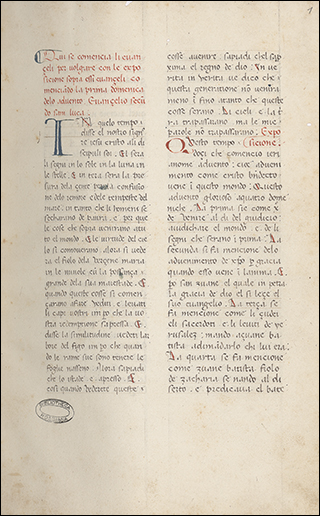 Qui se comencia li euan
geli per uolgare con le expo
sicione sopra essi euangeli. co
menciando la prima domenica
delo aduento. Euangelio secu
do san luca.
In quelo tempo
disse el nostro signore
iesu cristo ali di
sepuli soi. El sera
segni in sole in la luna in
le stelle. E in terra sera la pre
sura dela zente
ne delo remore e dele tempeste del
mare. in tanto che li homeni se
secharano de paura. e per que
le cose che sopra uenirano atu
to el mondo. E le uirtude del ciel
lo si comouerano. alora si uede
ra el fiolo dela uergene maria
in le niuole cu la possanza
grande dela sua maiestade. E
quando queste cosse si comen
zarano afare uedeti e leuati
li capi uostri impo che la uo
stra redemptione sapressa. E
disse la similitudine. uedeti lar
bore del figo impo che quan
do le rame sue sono tenere le
foglie nasseno. alora sapiadi
che lo istade e apresso. E
cosi quando uederete queste
cosse auenire sapiadi chel sap
xima el regno de dio. In ue
rita in uerita ue dico che
questa generatione no uenira
meno i fino atanto che queste
cosse serano. Li cieli e la tera
trapassarano. ma le mie
parole no trapassarano. Expo
Questo tempo sicione.
doci che comencio ven
anome aduento: cioe aduenimento
como cristo bnderto
uene i questo mondo. Questo
aduento glorioso aquatro dome
niche. La prima sie come x
de uenire al di del giudicio
a iudichare el mondo. e de li
segni che serano i prima. La
secunda si fa mencione delo
aduenimento de xpo p gracia
quando esso uene i lanima. E
po san zuane el quale in petra
la gracia de dio el si leçe el
suo euangelio. La terza se
fa mencione come li zudei
di sacerdoti e li leuiti de ye
rusalez. mando azuane ba
tista adimandarlo che lui era.
La quarta se fa mencione
como zuane batista fiolo
de zacharia se nando al di
serto. e predicaua el bate